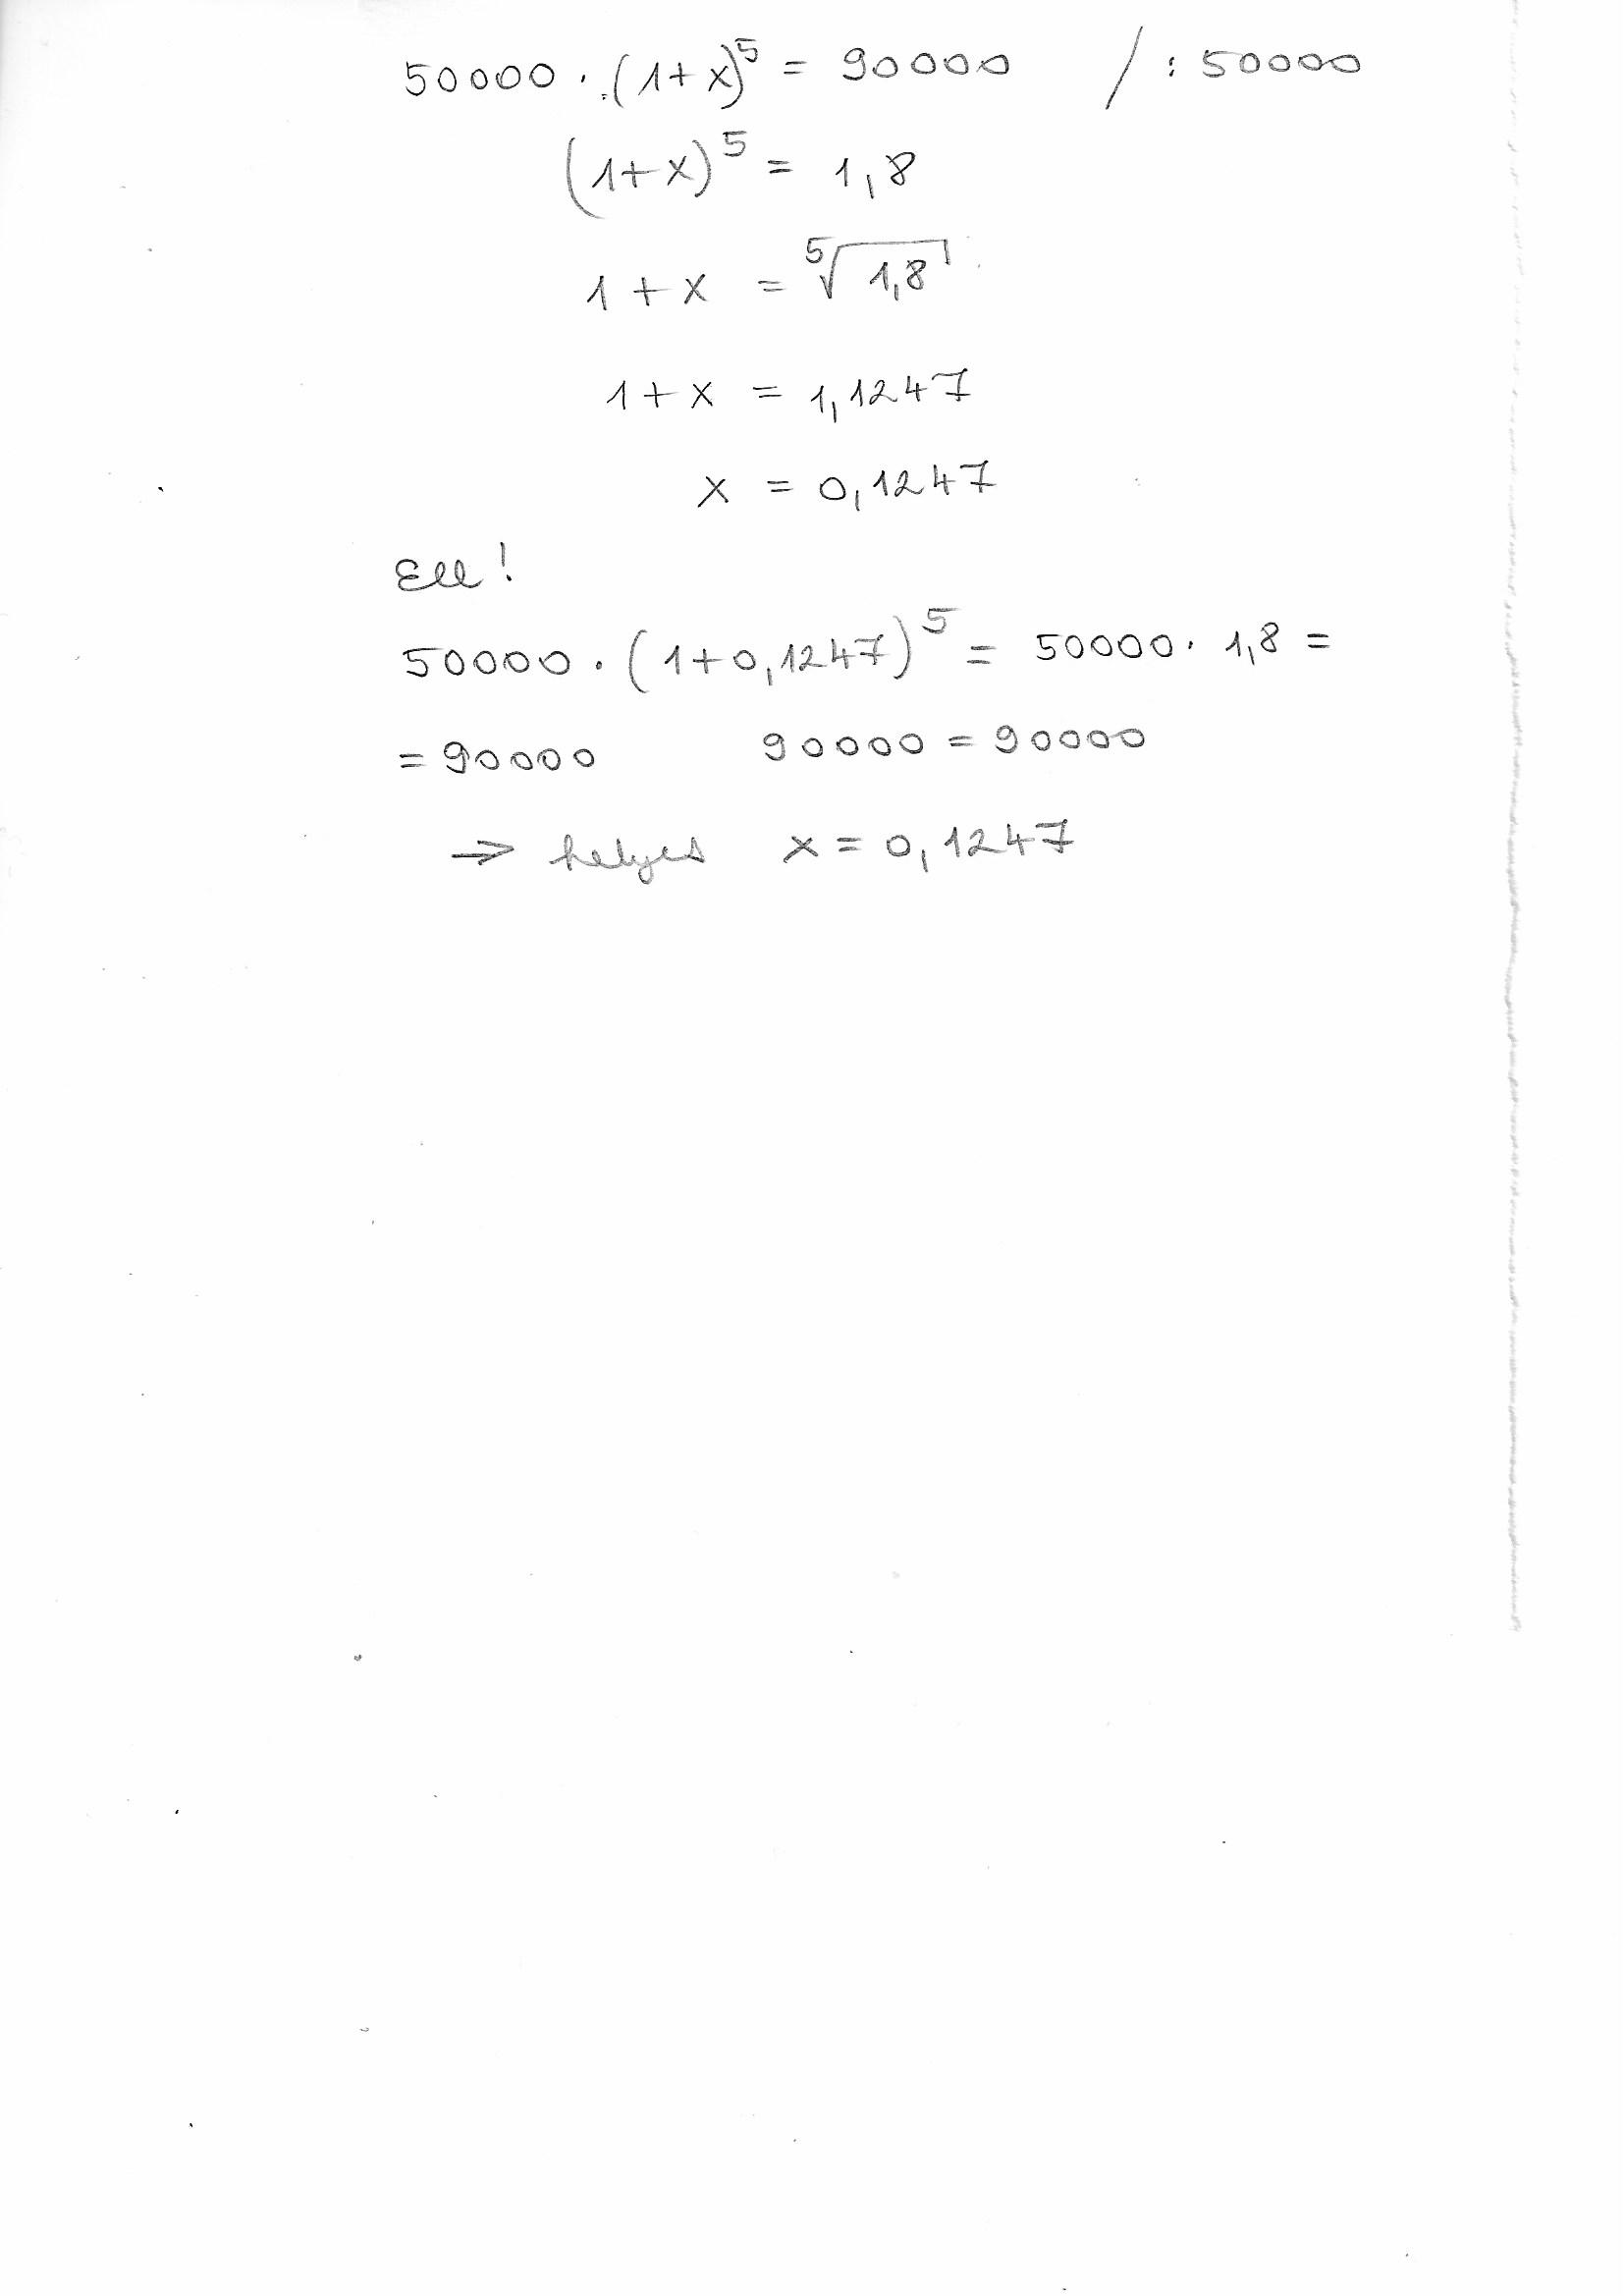 50000 · (1+x)⁵ = 90000 / : 50000
(1+x)⁵ = 1,8
1+x = ⁵√1,8
1+x = 1,1247
x = 0,1247
Ell!
50000 · (1+0,1247)⁵ = 50000 · 1,8 =
= 90000 90000 = 90000
→ helyes x = 0,1247